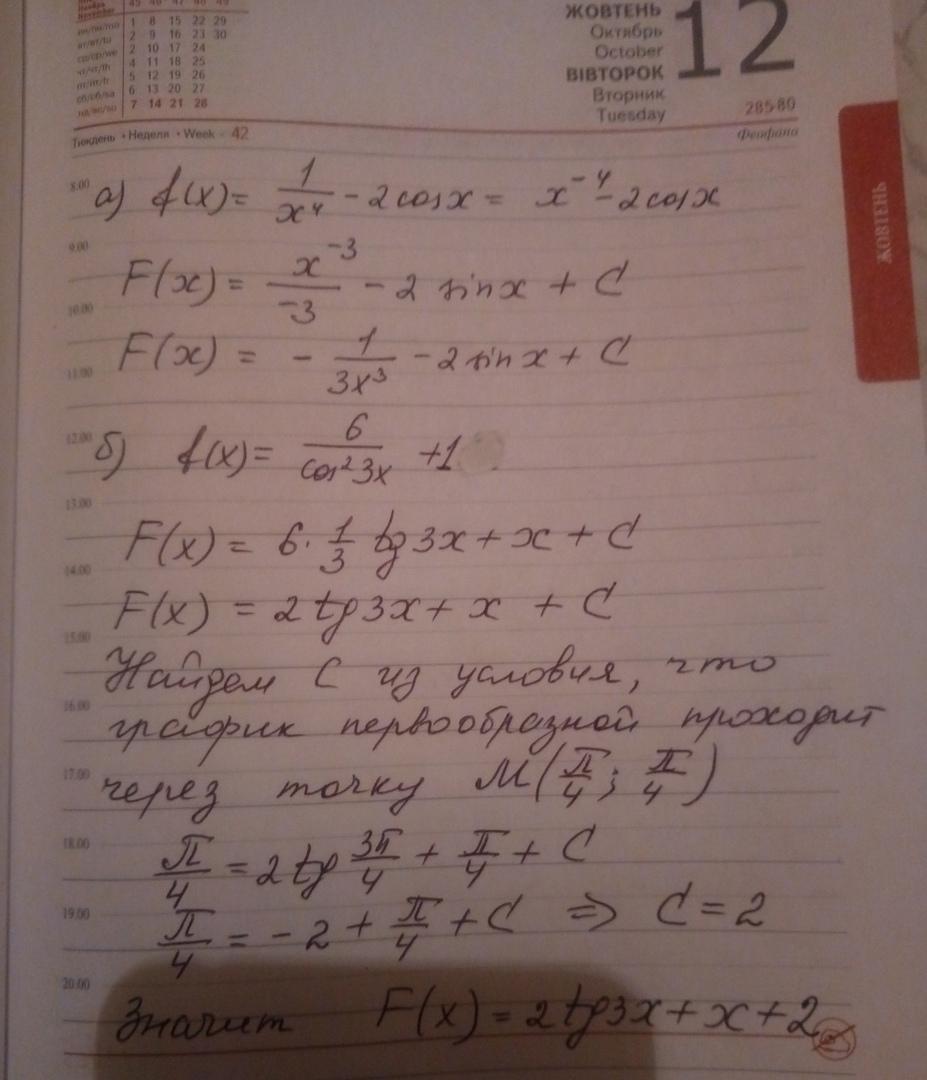 Ноябрь
November
45 46 47 48 49
1 8 15 22 29
2 9 16 23 30
2 10 17 24
4 11 18 25
5 12 19 26
6 13 20 27
7 14 21 28
ЖОВТЕНЬ
Октябрь
October
ВІВТОРОК
Вторник
Tuesday
12
285-80
Тиждень • Неделя • Week - 42
Феофана
ЖОВТЕНЬ
8.00
а) f(x) = 1/x⁴ - 2cosx = x⁻⁴ - 2cosx
9.00
F(x) = x⁻³/-3 - 2 sinx + C
10.00
F(x) = - 1/3x³ - 2 sinx + C
11.00
12.00
б) f(x) = 6/cos²3x +1
13.00
F(x) = 6·1/3 tg3x + x + C
14.00
F(x) = 2tg3x + x + C
15.00
Найдем C из условия, что
16.00
график первообразной проходит
17.00
через точку M(π/4; π/4)
18.00
π/4 = 2tg 3π/4 + π/4 + C
19.00
π/4 = -2 + π/4 + C ⇒ C = 2
20.00
Значит F(x) = 2tg3x + x + 2